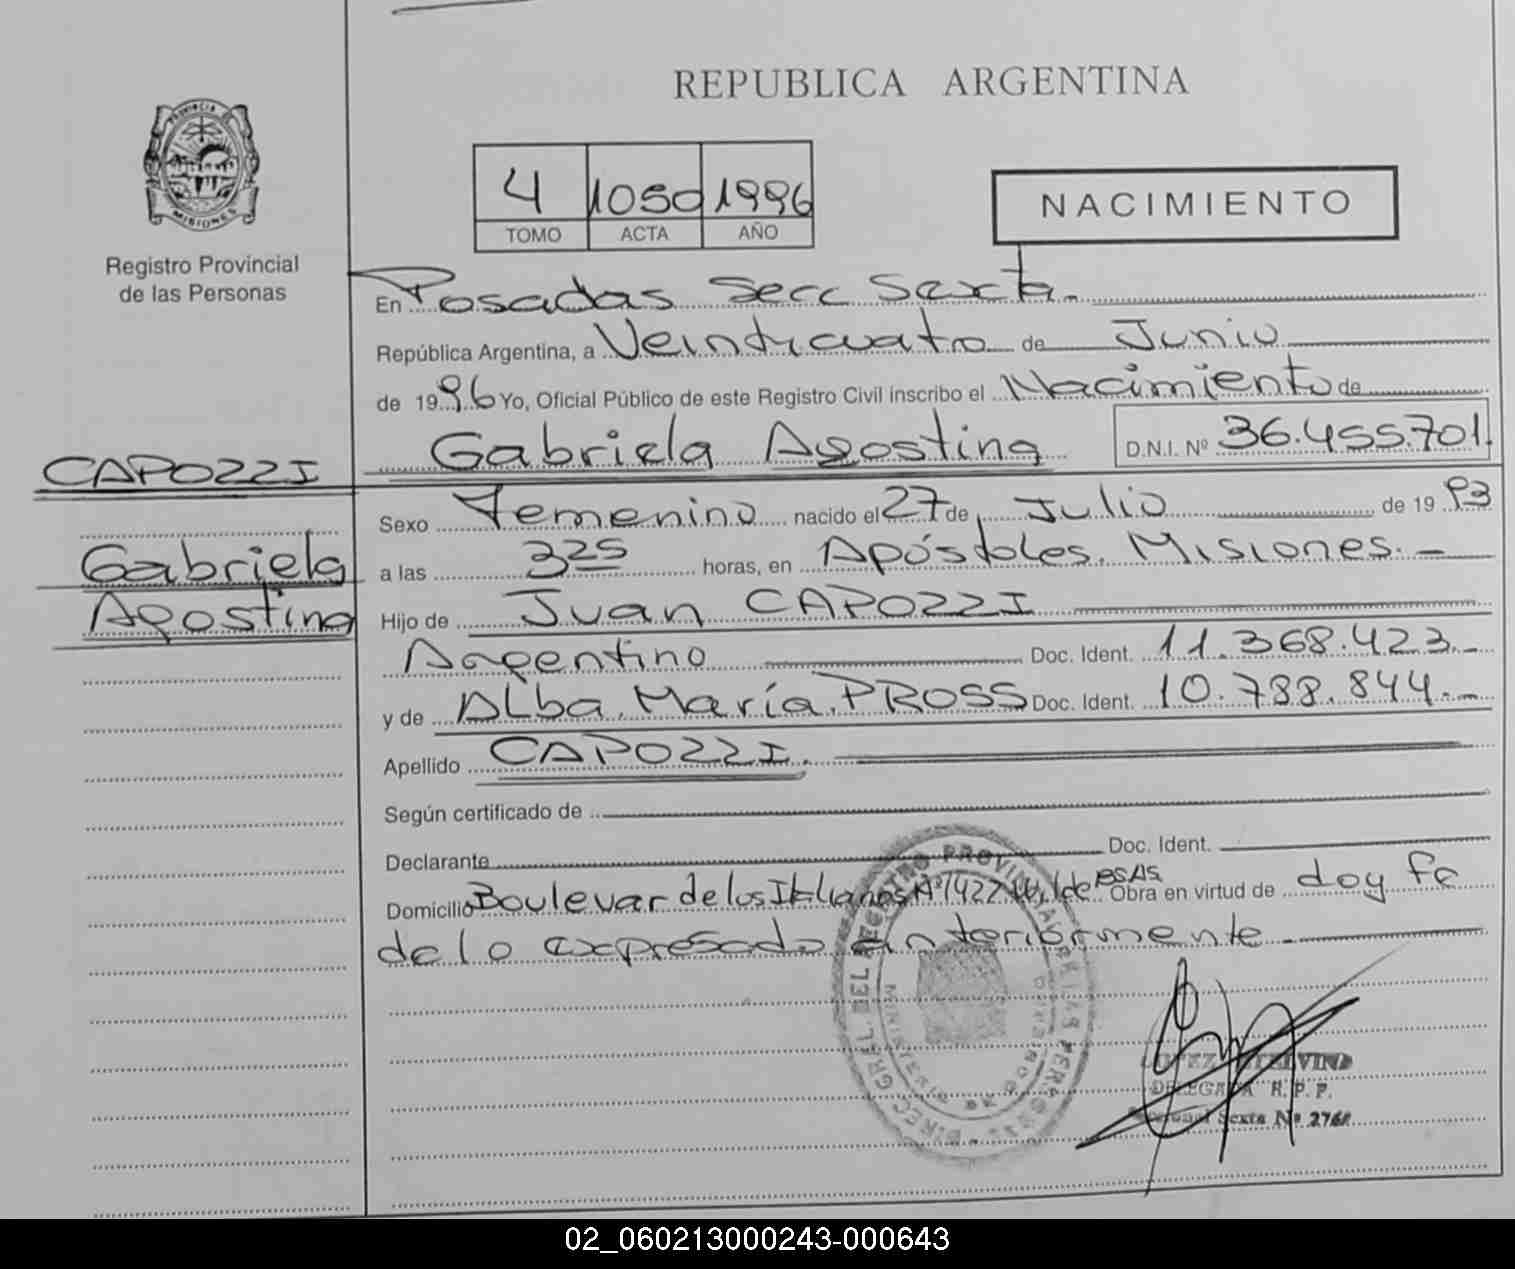 REPUBLICA ARGENTINA
PROVINCIA DE
MISIONES
Registro Provincial
de las Personas
4 1050 1996
TOMO ACTA AÑO
NACIMIENTO
En Posadas Secc Sexta.
República Argentina, a Veinticuatro de Junio
de 1996 Yo, Oficial Público de este Registro Civil inscribo el Nacimiento de
Gabriela Agostina D.N.I. Nº 36.455.701.
CAPOZZI
Gabriela
Agostina
Sexo Femenino nacido el 27 de Julio de 1993
a las 3 25 horas, en Apóstoles. Misiones.-
Hijo de Juan CAPOZZI
Argentino Doc. Ident. 11.368.423.-
y de Alba. María. PROSS Doc. Ident. 10.788.844.-
Apellido CAPOZZI.
Según certificado de
Declarante Doc. Ident.
Domicilio Boulevar de los Italianos Nº 1422 Wilde BSAS Obra en virtud de doy fe
de lo expresado anteriormente.
DIREC. GRAL. DEL REGISTRO PROVINCIAL DE LAS PERSONAS
MINISTERIO DE GOBIERNO
LOPEZ ETELVINA
DELEGADA R.P.P.
Seccional Sexta Nº 2768
02_060213000243-000643